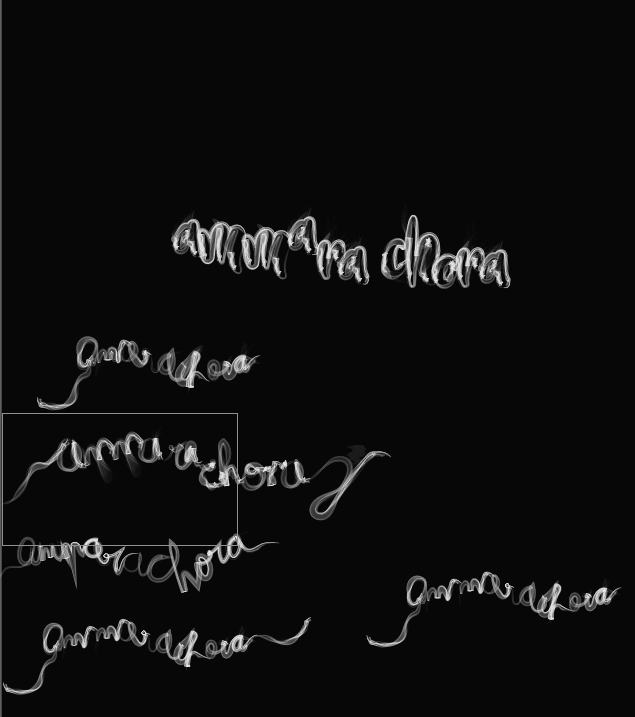 ammara chora
ammara chora
ammara chora
ammara chora
ammara chora
ammara chora